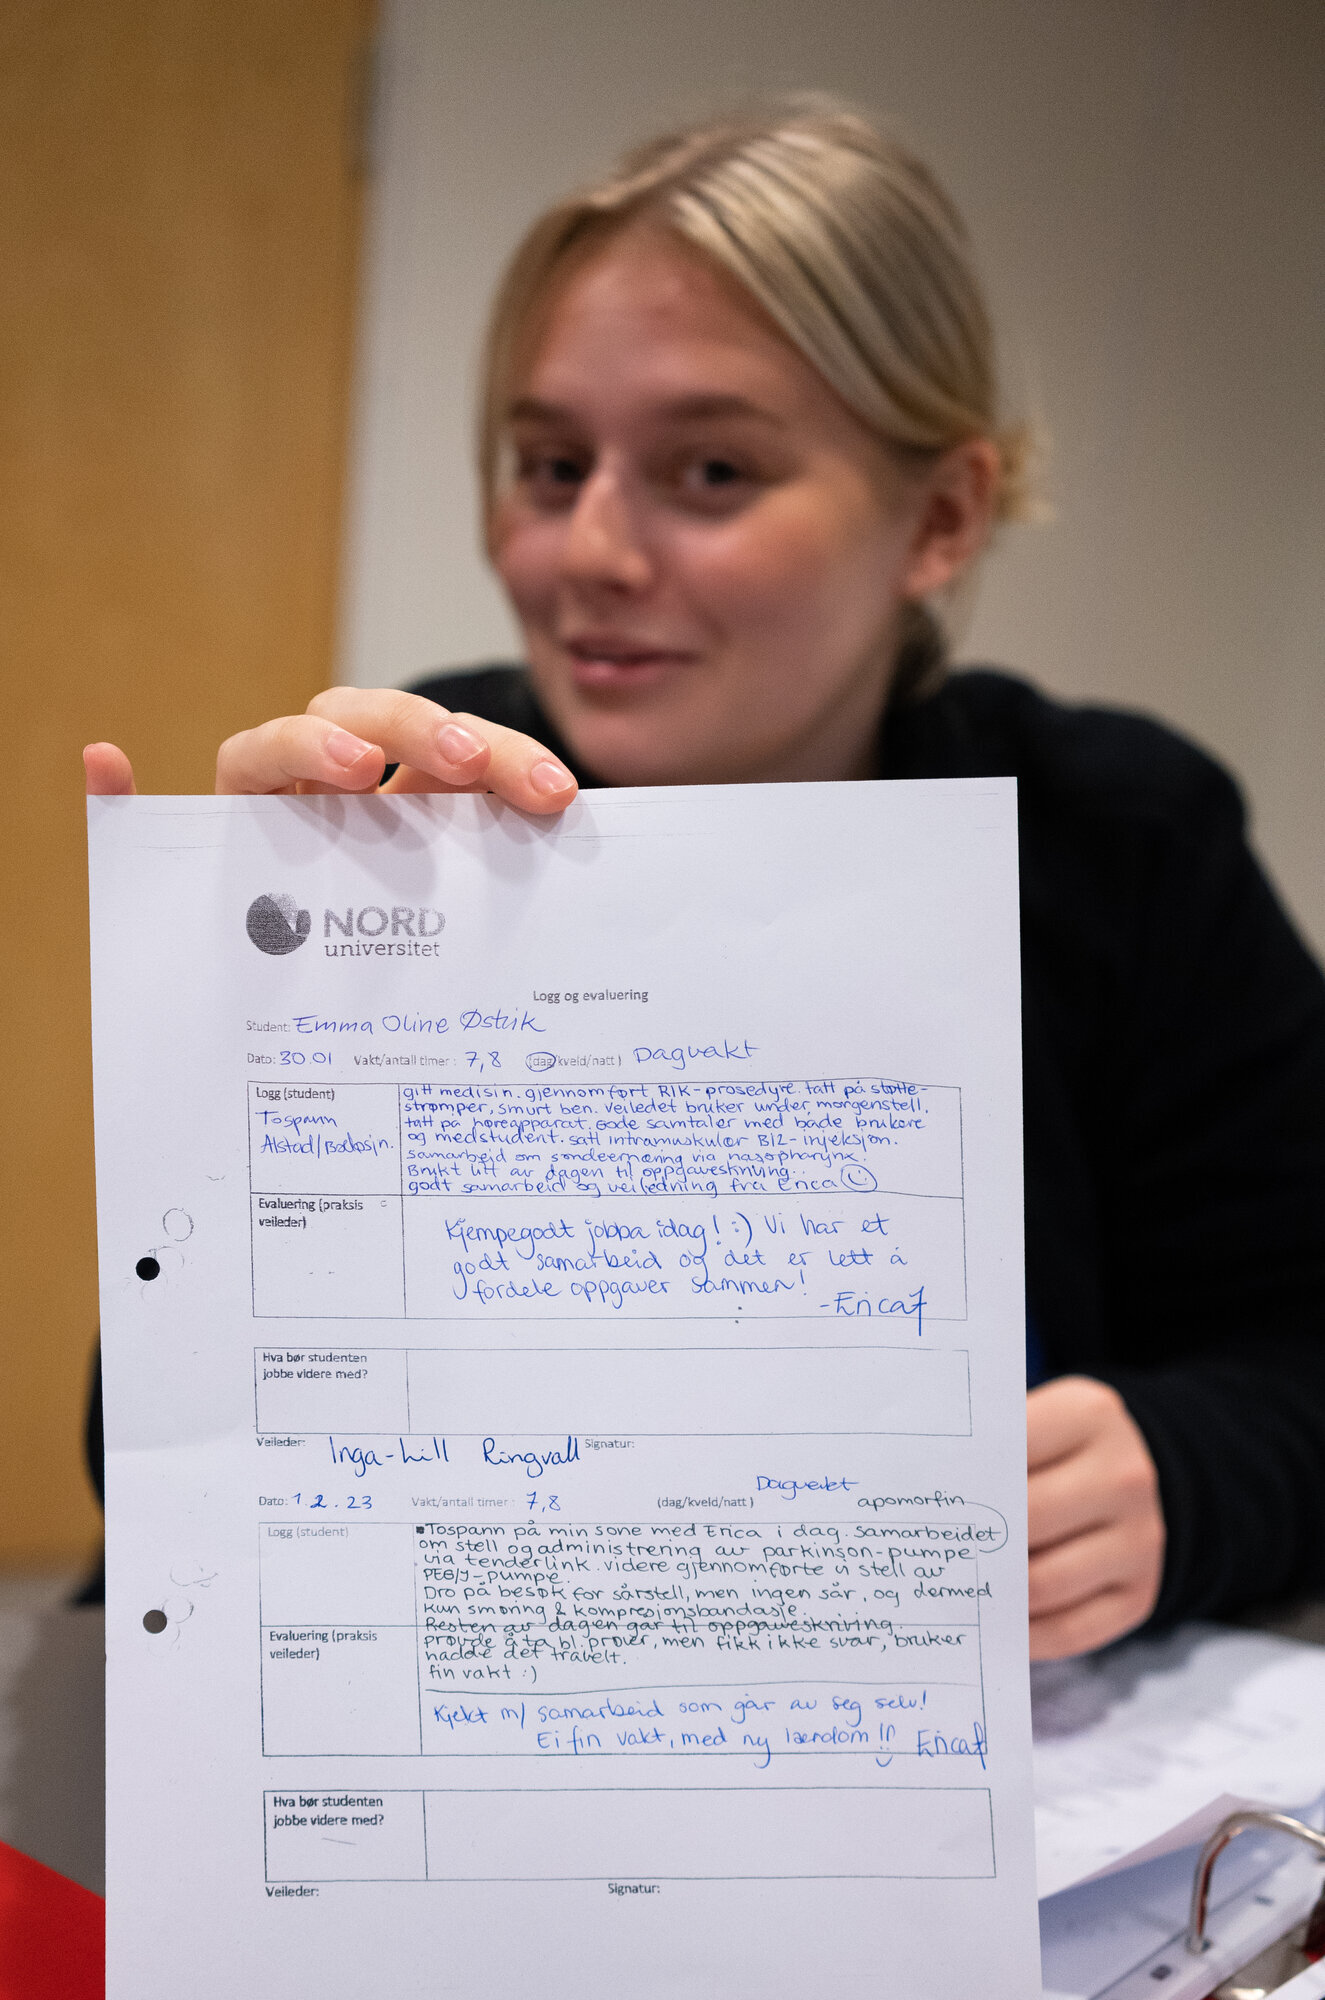 NORD
universitet
Logg og evaluering
Student: Emma Oline Østvik
Dato: 30.01 Vakt/antall timer: 7,8 (dag/kveld/natt) Dagvakt
Logg (student)
Tospann
Alstad/Bodøsjn.
gitt medisin. gjennomført RIK-prosedyre. tatt på støtte-
strømper, smurt ben. veiledet bruker under morgenstell.
tatt på høreapparat. Gode samtaler med både brukere
og medstudent. satt intramuskulær B12-injeksjon.
samarbeid om sondeernæring via nasopharynx.
Brukt litt av dagen til oppgaveskriving.
godt samarbeid og veiledning fra Erica
Evaluering (praksis
veileder)
Kjempegodt jobba idag! :) Vi har et
godt samarbeid og det er lett å
fordele oppgaver sammen!
-Erica
Hva bør studenten
jobbe videre med?
Veileder: Inga-Lill Ringvall Signatur:
Dato: 1.2.23 Vakt/antall timer: 7,8 (dag/kveld/natt) Dagvakt
apomorfin
Logg (student)
Tospann på min sone med Erica i dag. Samarbeidet
om stell og administrering av parkinson-pumpe
via tenderlink. videre gjennomførte vi stell av
PEG/J-pumpe.
Dro på besøk for sårstell, men ingen sår, og dermed
kun smøring & kompresjonsbandasje.
Resten av dagen går til oppgaveskriving.
Evaluering (praksis
veileder)
prøvde å ta bl.prøver, men fikk ikke svar, bruker
hadde det travelt.
fin vakt :)
Kjekt m/ samarbeid som går av seg selv!
Ei fin vakt, med ny lærdom!! Erica
Hva bør studenten
jobbe videre med?
Veileder: Signatur: